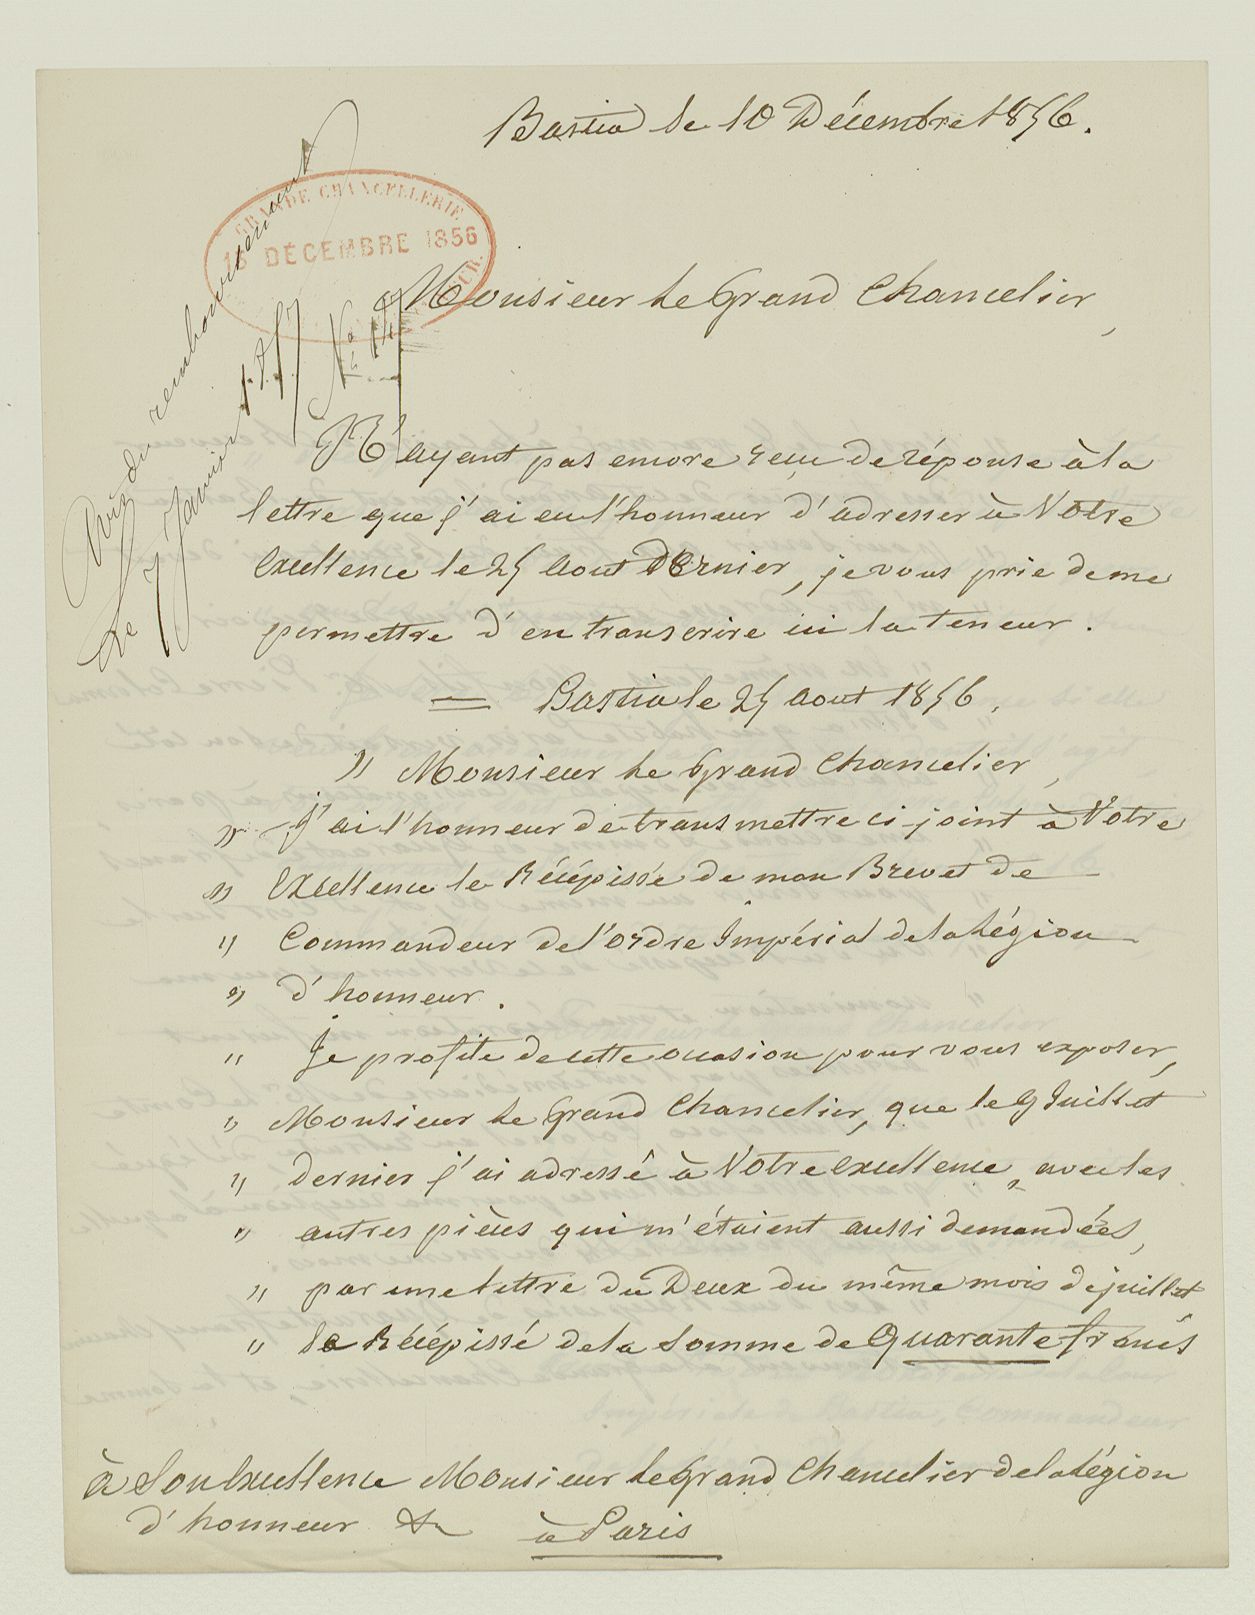 Bastia le 10 Décembre 1856.
GRANDE CHANCELLERIE
DÉCEMBRE 1856
Avis du remboursement
le 7 Janvier 1857
No 14
Monsieur le Grand Chancelier,
N'ayant pas encore reçu de réponse à la
lettre que j'ai eu l'honneur d'adresser à Votre
Excellence le 25 Aout Dernier, je vous prie de me
permettre d'en transcrire ici la teneur.
= Bastia le 25 Aout 1856.
" Monsieur le Grand Chancelier,
" J'ai l'honneur de transmettre ci-joint à Votre
" Excellence le Récépissée de mon Brevet de
" Commandeur de l'ordre Impérial de la Légion
" d'honneur.
" Je profite de cette occasion pour vous exposer,
" Monsieur le Grand Chancelier, que le 9 Juillet
" dernier j'ai adressé à Votre Excellence, avec les
" autres pièces qui m'étaient aussi demandées,
" par une lettre du Deux du même mois de juillet,
" le Récépissé de la Somme de Quarante francs
à Son Excellence Monsieur le Grand Chancelier de la Légion
d'honneur &a à Paris